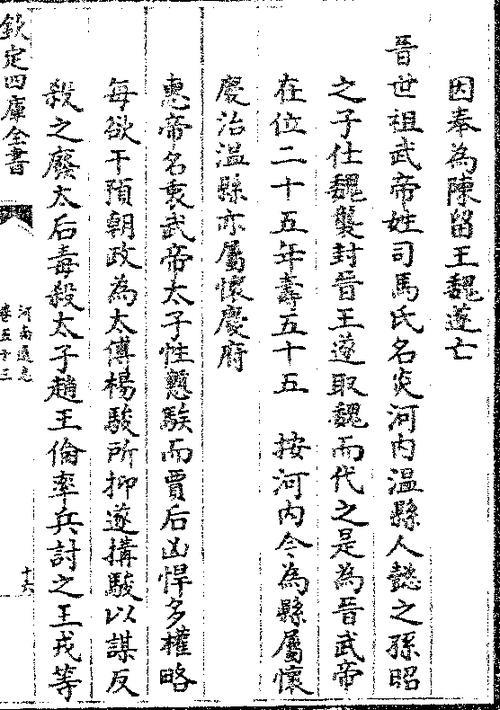 因奉為陳留王魏遂亡
晉世祖武帝姓司馬氏名炎河内溫縣人懿之孫昭
之子仕魏襲封晉王遂取魏而代之是為晉武帝
在位二十五年壽五十五　按河内今為縣屬懷
慶治溫縣亦屬懷慶府
惠帝名衷武帝太子性戇騃而賈后凶悍多權略
每欲干預朝政為太傅楊駿所抑遂搆駿以謀反
殺之廢太后毒殺太子趙王倫率兵討之王戎等
欽定四庫全書
河南通志
卷五十三
十六